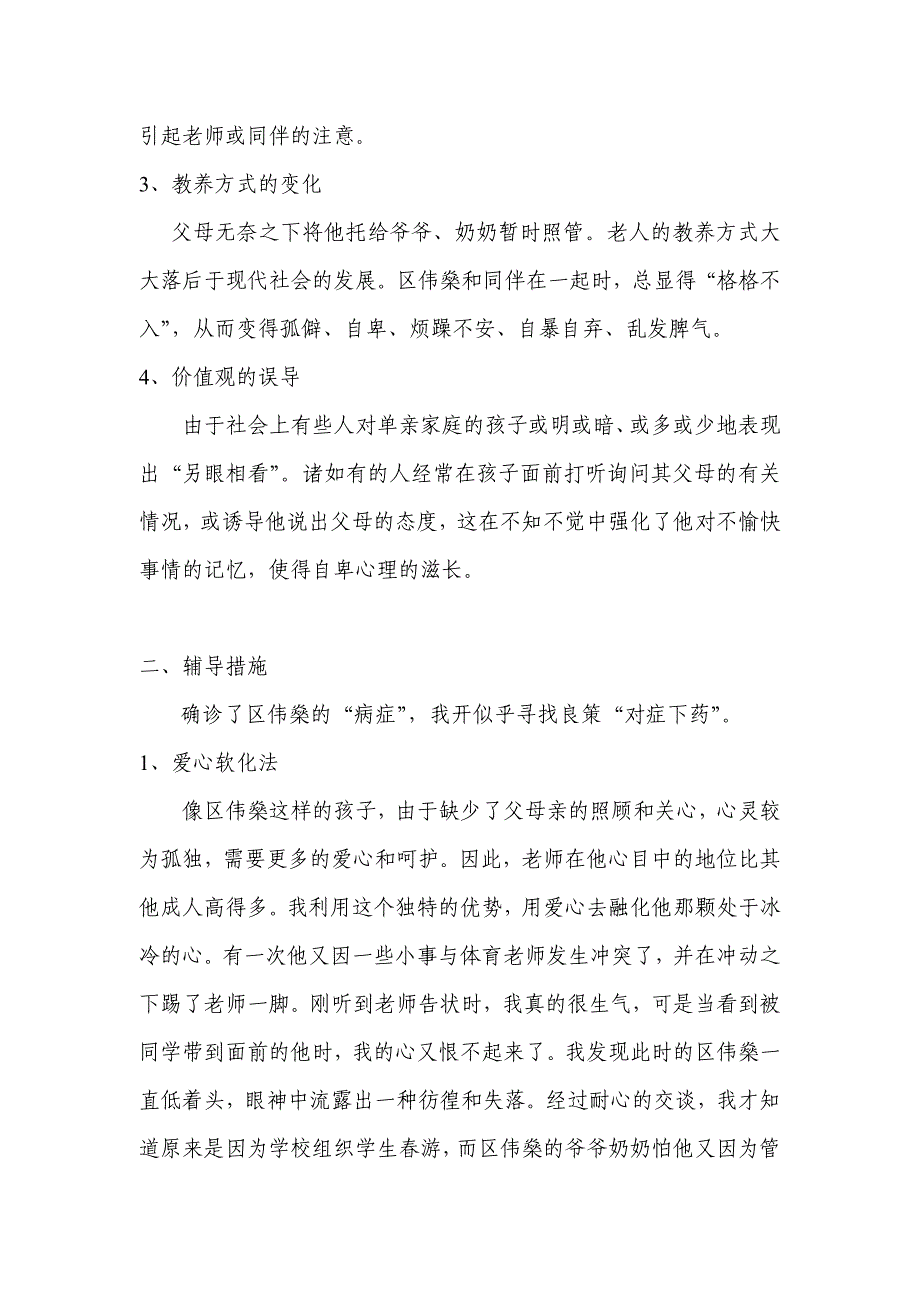 引起老师或同伴的注意。
3、教养方式的变化
父母无奈之下将他托给爷爷、奶奶暂时照管。老人的教养方式大
大落后于现代社会的发展。区伟燊和同伴在一起时，总显得“格格不
入”，从而变得孤僻、自卑、烦躁不安、自暴自弃、乱发脾气。
4、价值观的误导
由于社会上有些人对单亲家庭的孩子或明或暗、或多或少地表现
出“另眼相看”。诸如有的人经常在孩子面前打听询问其父母的有关
情况，或诱导他说出父母的态度，这在不知不觉中强化了他对不愉快
事情的记忆，使得自卑心理的滋长。
二、辅导措施
确诊了区伟燊的“病症”，我开似乎寻找良策“对症下药”。
1、爱心软化法
像区伟燊这样的孩子，由于缺少了父母亲的照顾和关心，心灵较
为孤独，需要更多的爱心和呵护。因此，老师在他心目中的地位比其
他成人高得多。我利用这个独特的优势，用爱心去融化他那颗处于冰
冷的心。有一次他又因一些小事与体育老师发生冲突了，并在冲动之
下踢了老师一脚。刚听到老师告状时，我真的很生气，可是当看到被
同学带到面前的他时，我的心又恨不起来了。我发现此时的区伟燊一
直低着头，眼神中流露出一种彷徨和失落。经过耐心的交谈，我才知
道原来是因为学校组织学生春游，而区伟燊的爷爷奶奶怕他又因为管